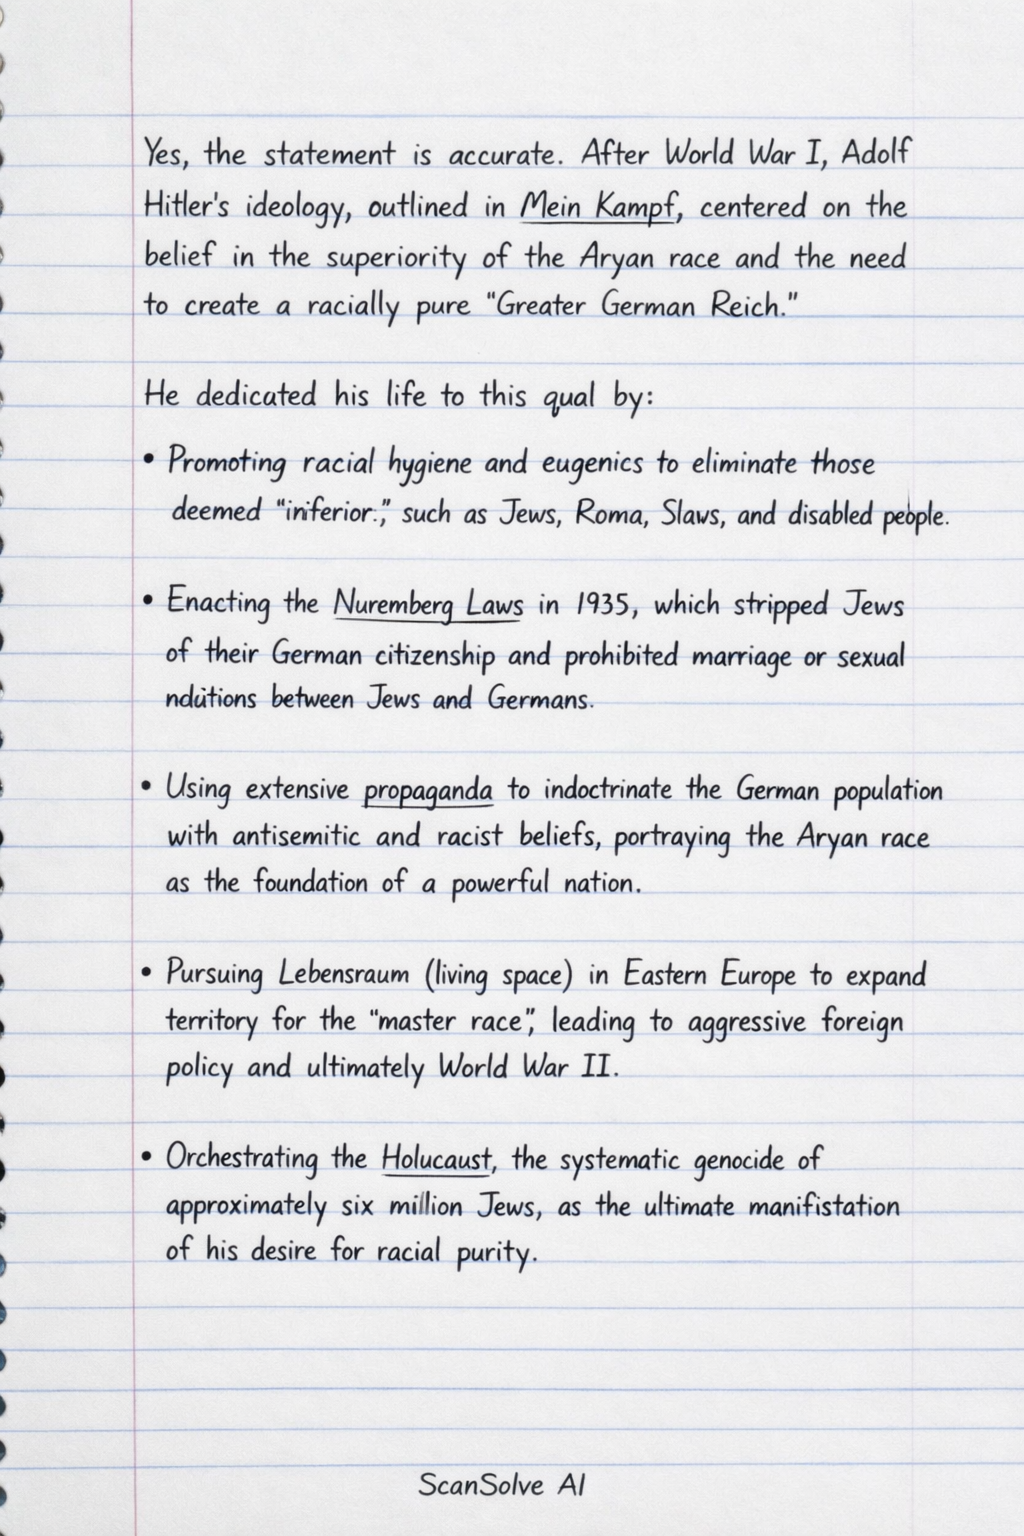 Yes, the statement is accurate. After World War I, Adolf
Hitler's ideology, outlined in Mein Kampf, centered on the
belief in the superiority of the Aryan race and the need
to create a racially pure "Greater German Reich."
He dedicated his life to this qual by:
• Promoting racial hygiene and eugenics to eliminate those
deemed "inferior.," such as Jews, Roma, Slaws, and disabled people.
• Enacting the Nuremberg Laws in 1935, which stripped Jews
of their German citizenship and prohibited marriage or sexual
between Jews and Germans.
• Using extensive propaganda to indoctrinate the German population
with antisemitic and racist beliefs, portraying the Aryan race
as the foundation of a powerful nation.
• Pursuing Lebensraum (living space) in Eastern Europe to expand
territory for the "master race", leading to aggressive foreign
policy and ultimately World War II.
• Orchestrating the Holucaust, the systematic genocide of
approximately six million Jews, as the ultimate manifistation
of his desire for racial purity.
ScanSolve AI